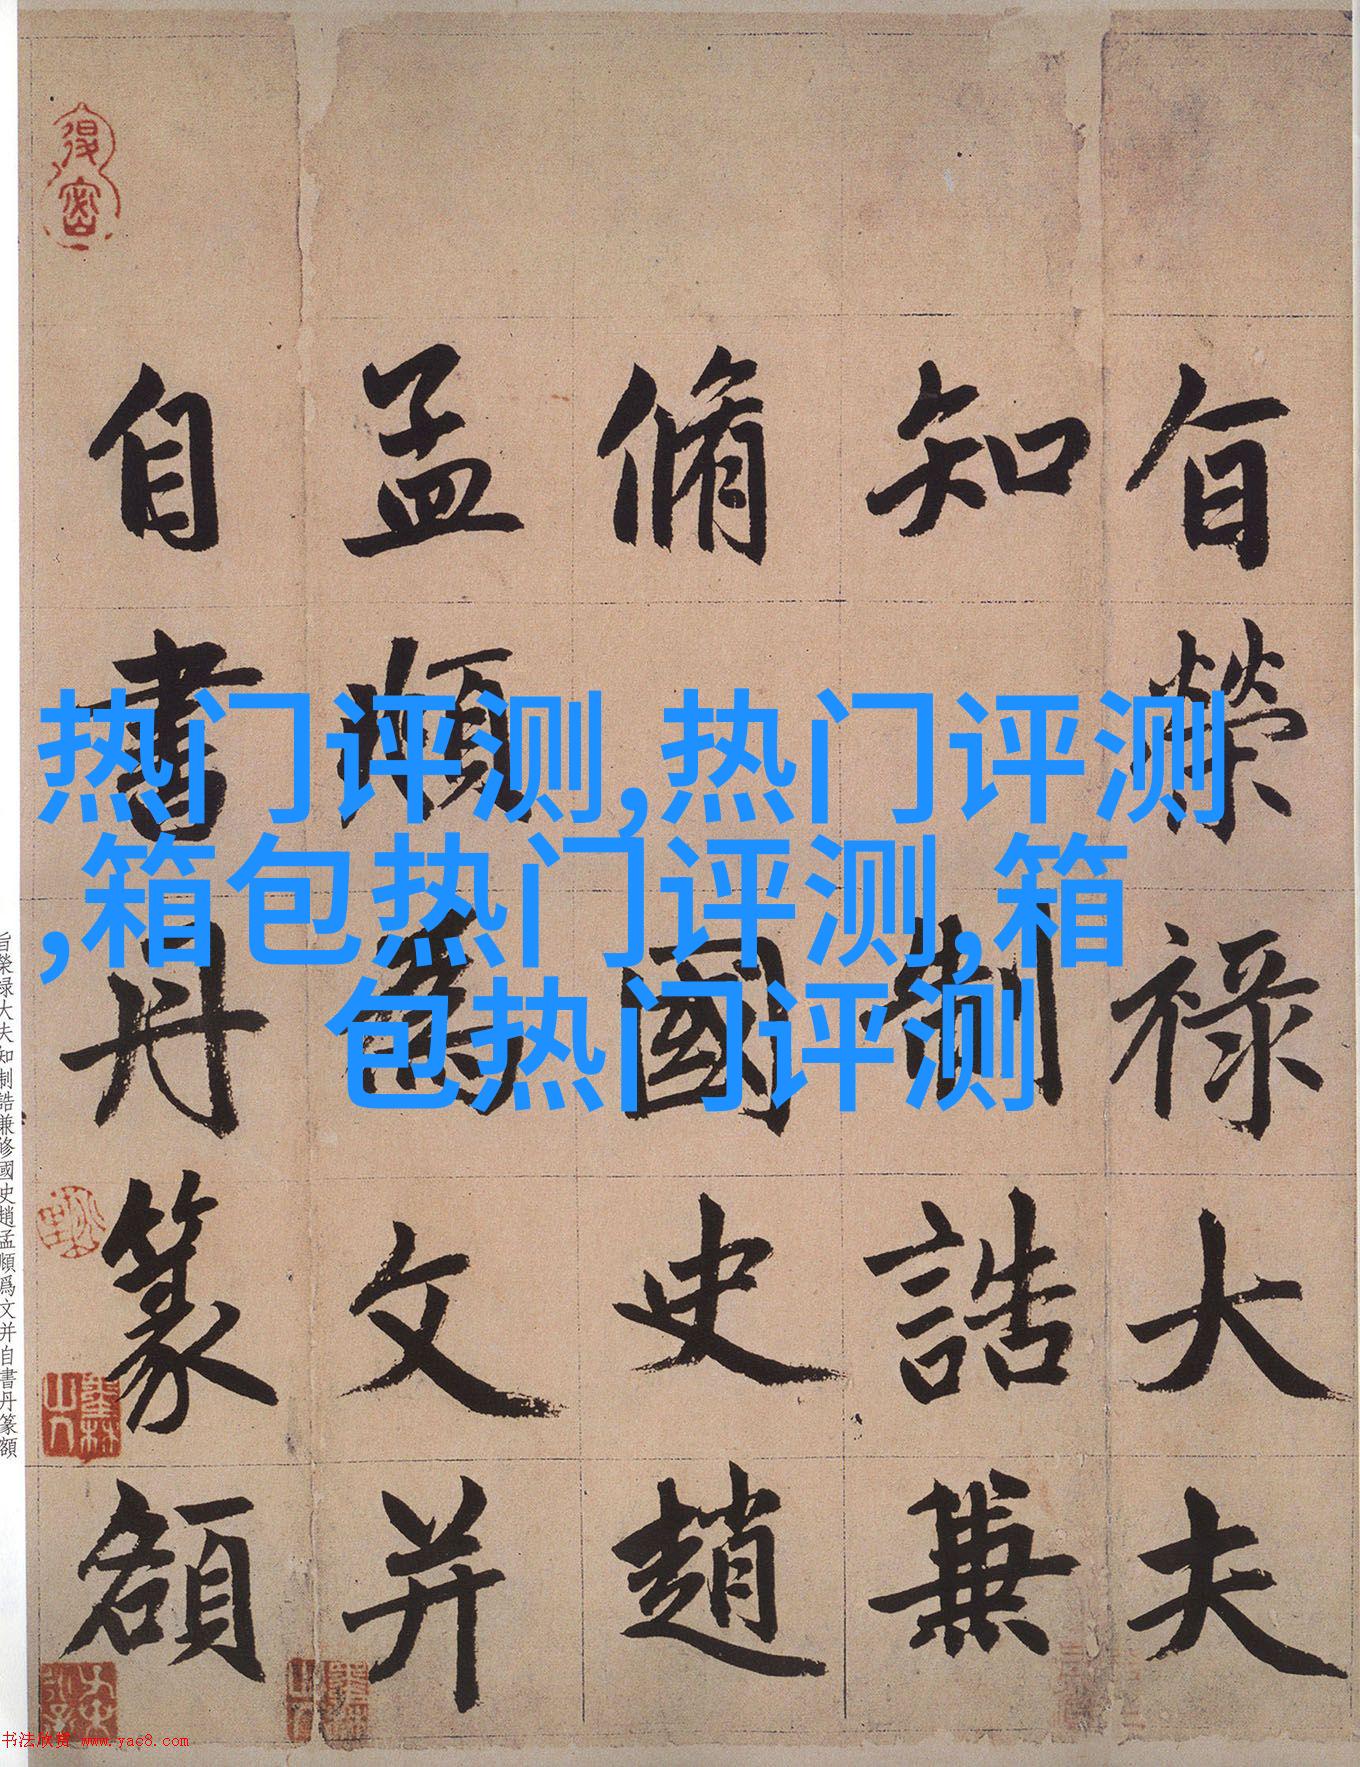 旨榮祿大夫
知制誥兼
脩國史趙
孟頫為文并
自書丹篆額
热门评测,热门评测
,箱包热门评测,箱
包热门评测
旨榮禄大夫知制誥兼修國史趙孟頫爲文并自書丹篆額
书法欣赏 www.yac8.com